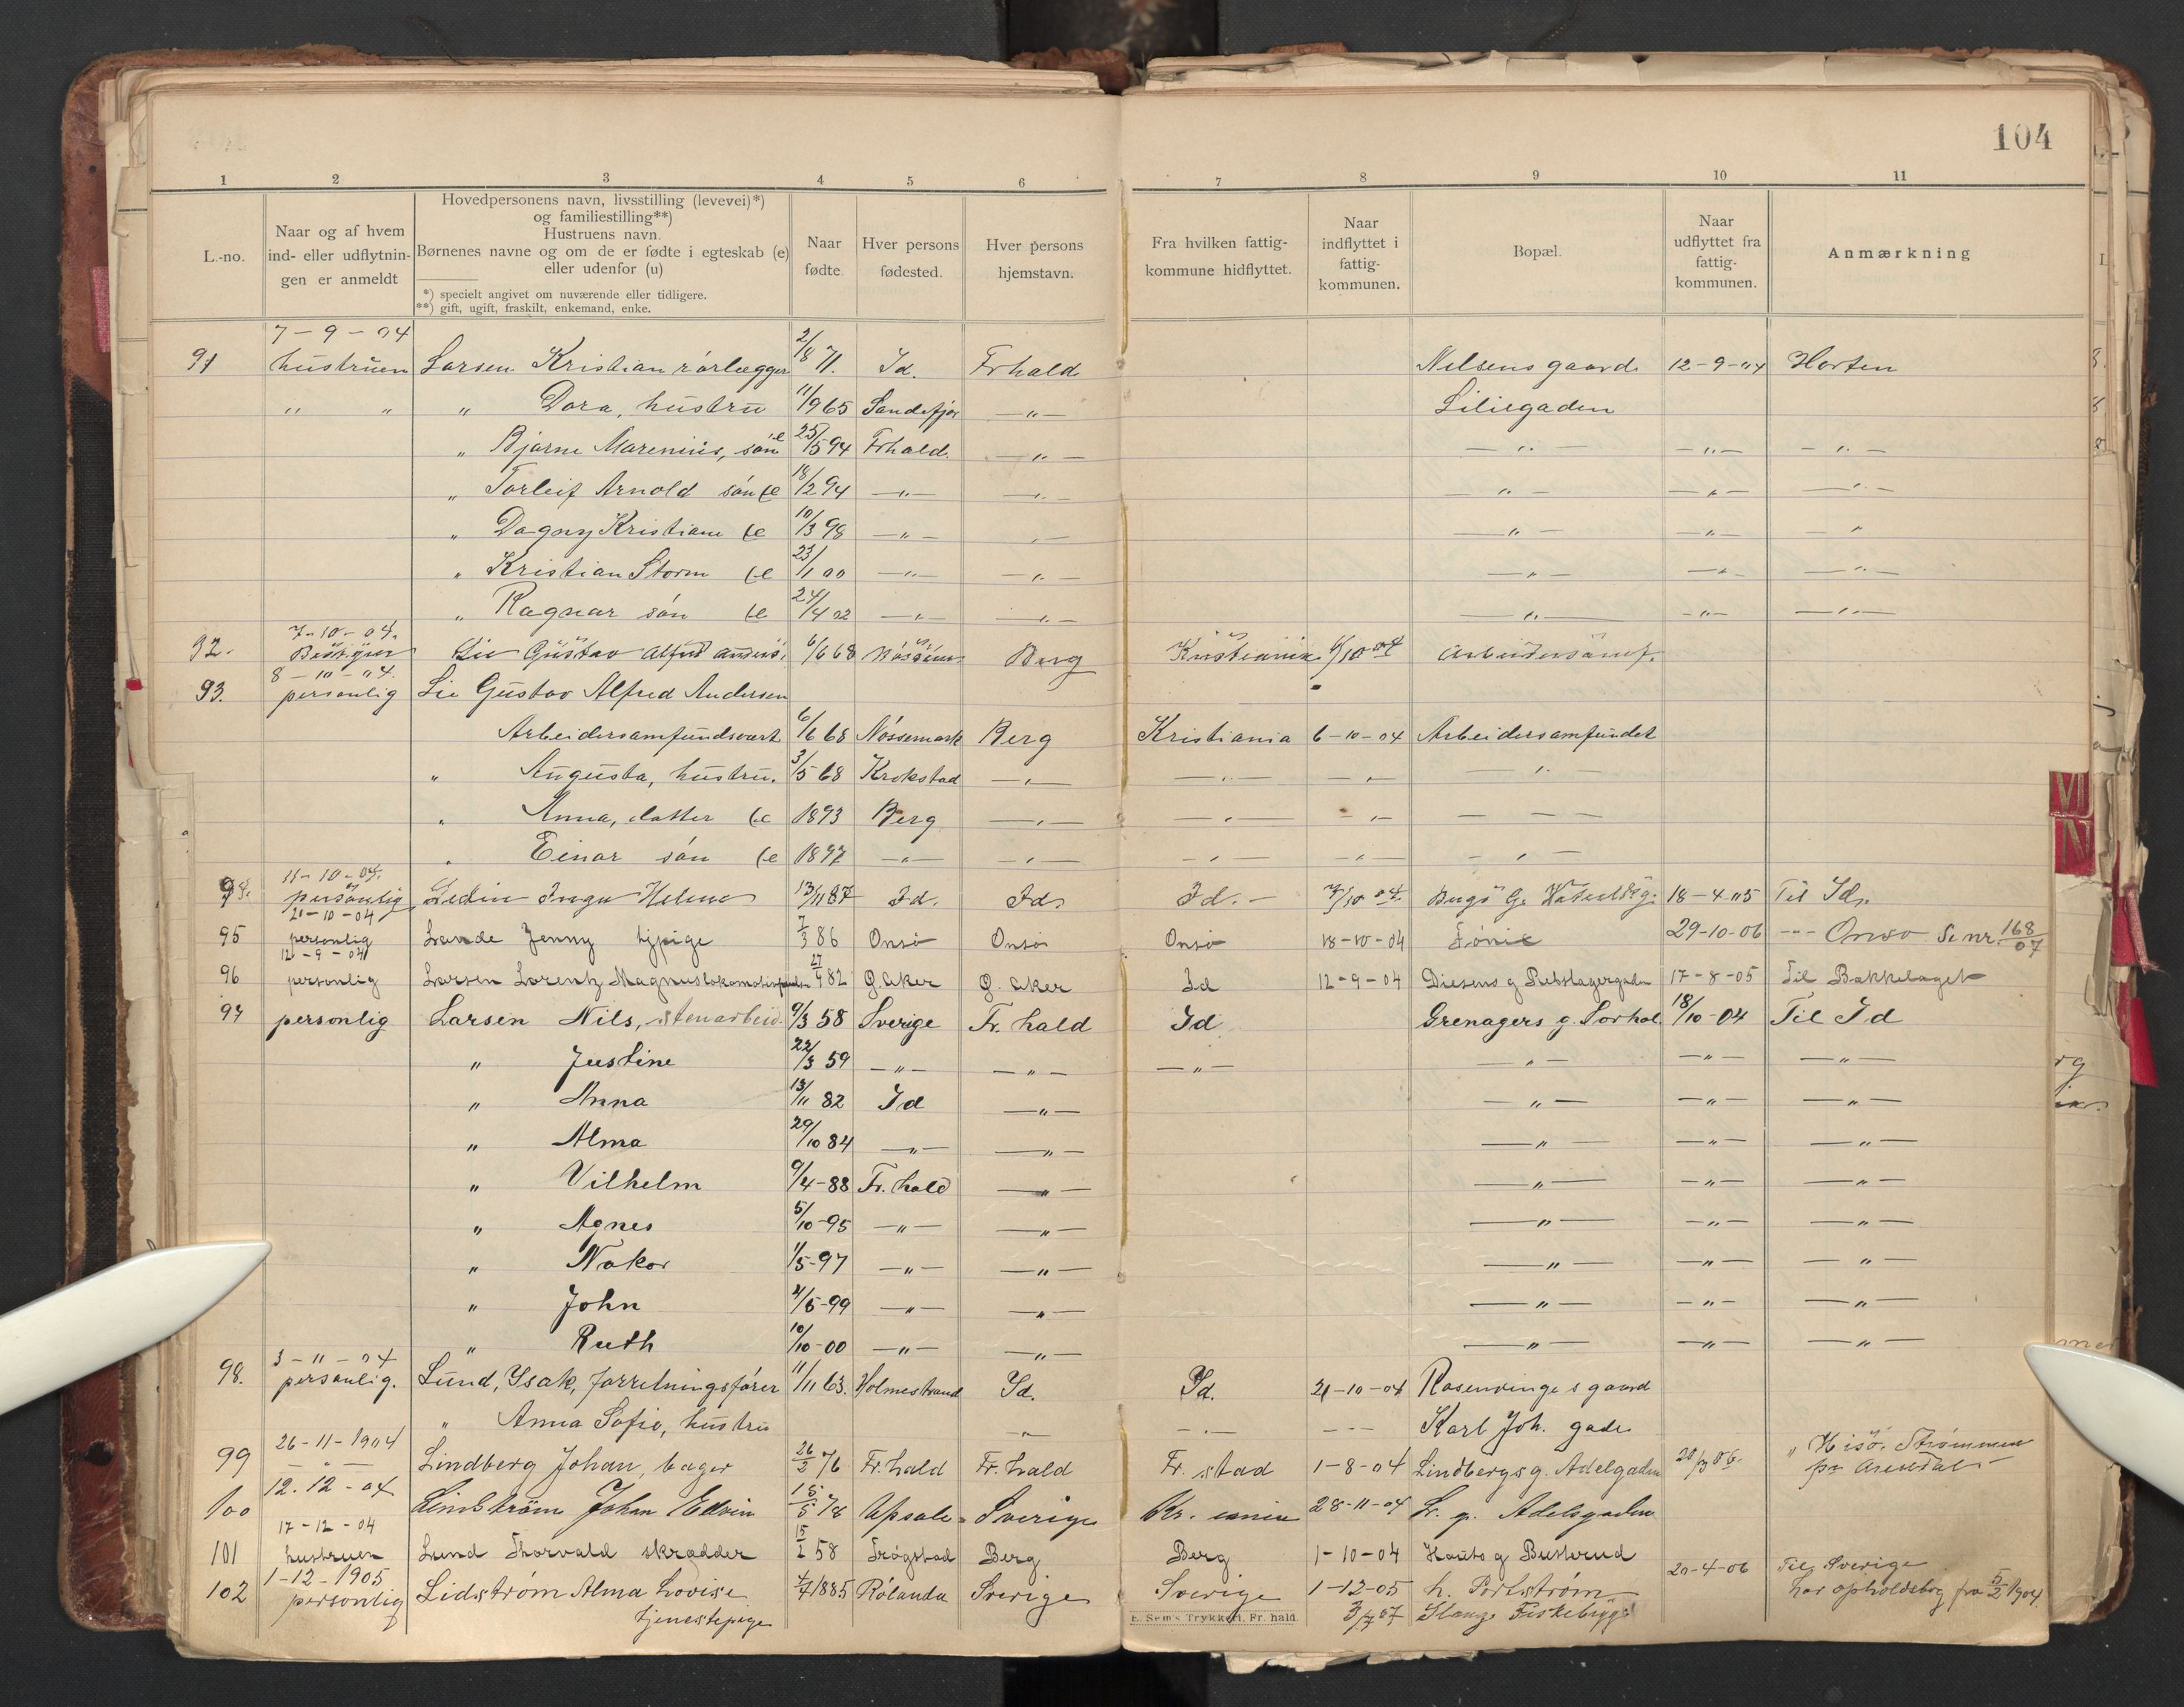 104
1 2 3 4 5 6 7 8 9 10 11
L.-no.
Naar og af hvem ind- eller udflytningen er anmeldt
Hovedpersonens navn, livsstilling (levevei)*)
og familiestilling**)
Hustruens navn.
Børnenes navne og om de er fødte i egteskab (e)
eller udenfor (u)
*) specielt angivet om nuværende eller tidligere.
**) gift, ugift, fraskilt, enkemand, enke.
Naar fødte.
Hver persons fødested.
Hver persons hjemstavn.
Fra hvilken fattigkommune hidflyttet.
Naar indflyttet i fattigkommunen.
Bopæl.
Naar udflyttet fra fattigkommunen.
Anmærkning
7-9-04
91 hustruen Larsen Kristian rörlegger 2/8 71. Id. Frhald Nilsens gaard. 12-9-04 Horten
" " " Dora, hustru 11/9 65 Sandefjor —"— Liliegaden
" Bjarne Marenius, sön e 25/5 94 Frhald. —"— —"— —"— —"—
" Torleif Arnold sön (e 18/2 94 —"— —"— —"— —"— —"—
" Dagny Kristiane (e 10/3 98 —"— —"— —"— —"— —"—
" Kristian Storm (e 23/11 00 —"— —"— —"— —"— —"—
" Ragnar sön (e 24/4 02 —"— —"— —"— —"— —"—
7-10-04.
92. Bestyrer Lie Gustav Alfred Anders. 6/6 68 Berg Kristiania 6/10 04 Arbeidersamf.
8-10-04.
93. personlig Lie Gustav Alfred Andersen
Arbeidersamfundsvært 6/6 68 Nössemark Berg Kristiania 6-10-04 Arbeidersamfundet
" Augusta, hustru. 3/5 68 Krokstad —"— —"— —"— "
" Anna, datter (e 1893 Berg —"— —"— —"— — — —
" Einar sön (e 1897 —"— —"— —"— —"— —"—
11-10-04.
94. personlig Ledin Inga Helene 13/11 87 Id. Id. Id. 7/10 04. 18-4-05 Til Id.
21-10-04
95 personlig Lande Jenny tjpige 7/3 86 Onsö Onsö Onsö 18-10-04 Fönix 29-10-06 --- Onsö Se nr. 168/07
12-9-04
96 personlig Larsen Lorentz Magnus 27/4 82 G. Aker G. Aker Id 12-9-04 Diesens g Rebslagergaden 17-8-05 Til Bakkelaget
97 personlig Larsen Nils, stenarbeid. 9/3 58 Sverige Fr. hald Id Grenagers g. Sorhal. 18/10-04 Til Id
" Justine 22/3 59 —"— —"— —"— —"— —"— —"—
" Anna 13/11 82 Id —"— —"— —"— —"—
" Alma 29/10 84 —"— —"— —"— —"— —"—
" Vilhelm 9/4-88 Fr. hald —"— —"— —"— —"—
" Agnes 5/10-95 —"— —"— —"— —"— —"—
" Nakor 1/5-97 —"— —"— —"— —"— —"—
" John 4/5-99 —"— —"— —"— —"— —"—
" Ruth 10/10-00 —"— —"— —"— —"— —"—
3-11-04
98. personlig. Lund, Ysak, forretningsförer 11/11 63. Holmestrand Id. Id. 21-10-04 Rosenvinges gaard
" Anna Sofie, hustru —"— —"— --- Karl Joh. gade
26-11-1904
99 —"— Lindberg Johan, bager 26/2 76 Fr. hald Fr. hald Fr. stad 1-8-04 Lindbergs g. Adelgaden " Hisö. Strømmen pr Arendal
12.12-04
100 Lindstrøm Johan Edvin 15/5 78 Upsala Sverige Kr. ania 28-11-04 L. g. Adelsgaden
17-12-04
101 hustruen Lund Thorvald skrædder 15/2 58 Trøgstad Berg Berg 1-10-04 g Busterud
1-12-1905
102 personlig Lidstrøm Alma Lovise 4/7 1885 Rölanda Sverige Sverige 1-12-05 h. Portstrøm 20-4-06 Til Sverige
tjenestepige 3/7 07 Stange Fiskebryg. har opholdsbog fra 5/2 1904.
E. Sem's Trykkeri, Fr. hald.